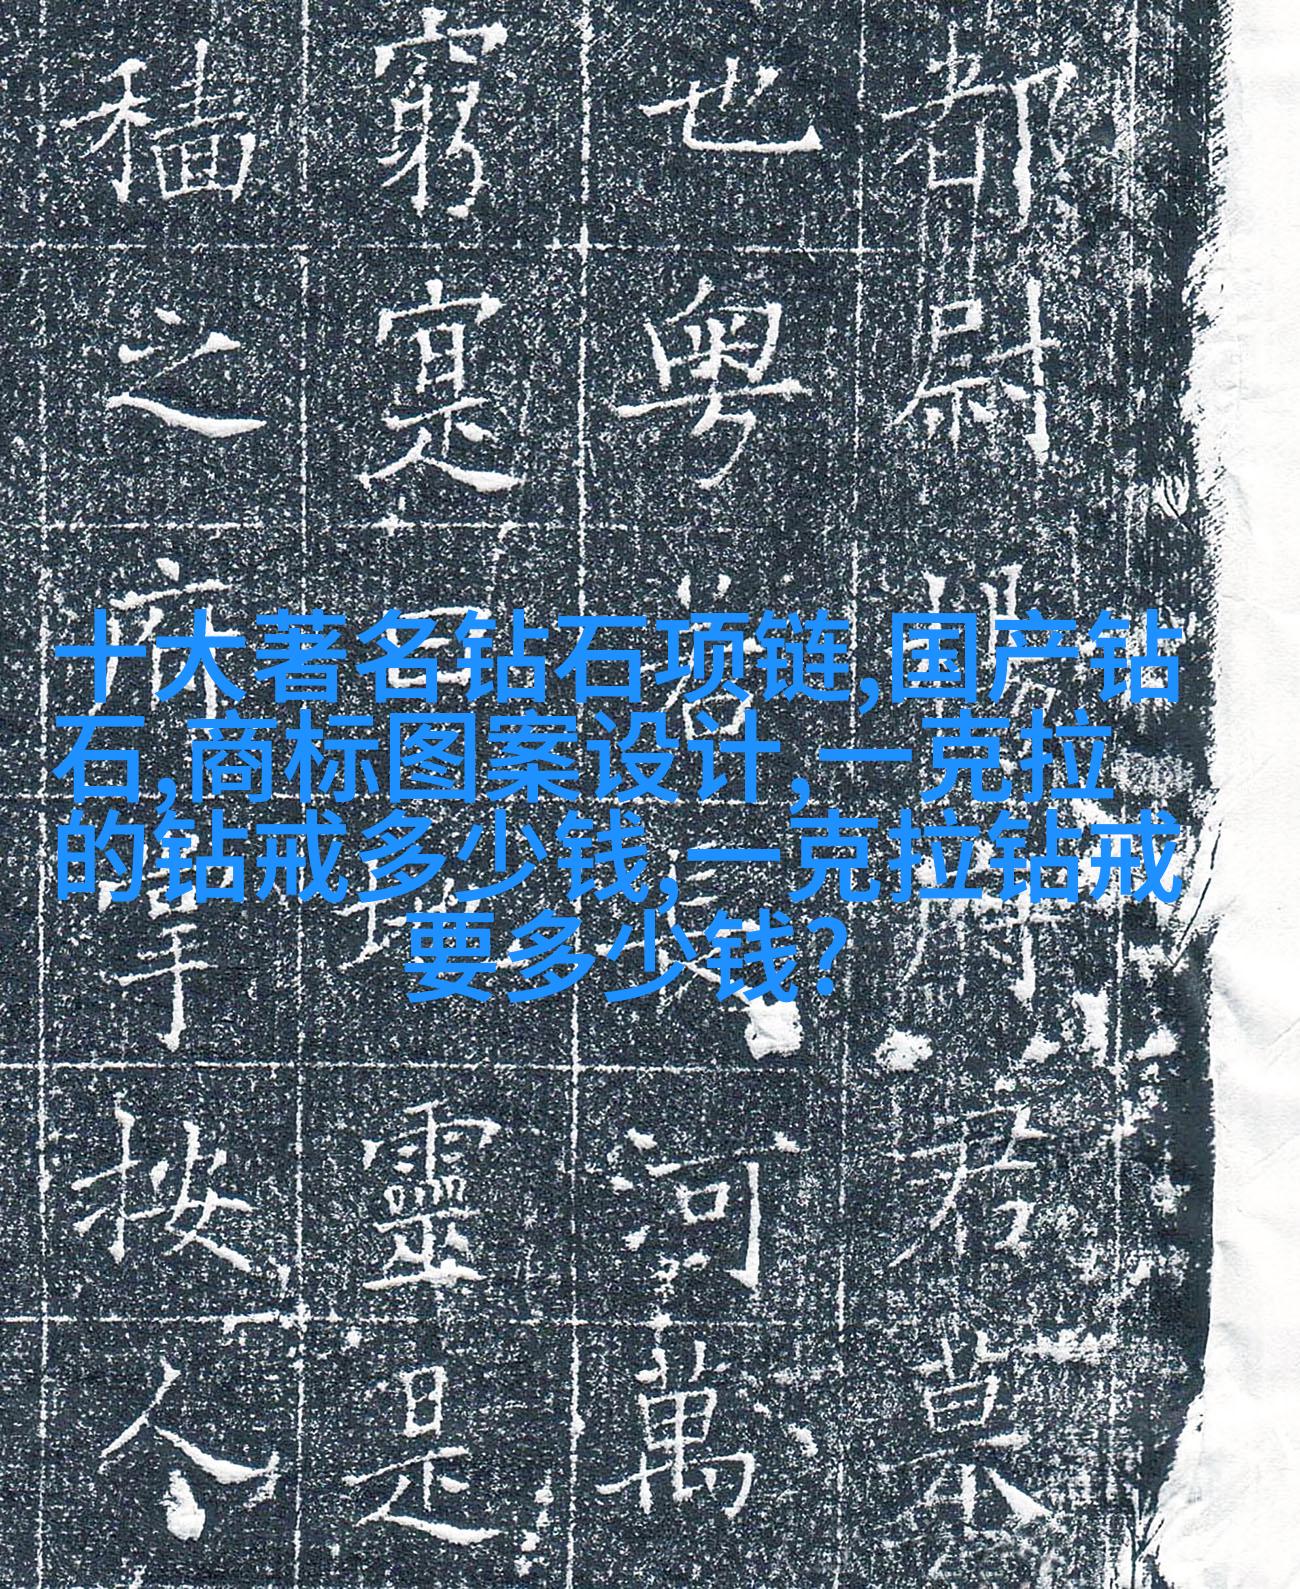 都尉揚府君墓
也粤若
河萬
窮寔
靈是
穡之府
按人
十大著名钻石项链,国产钻
石,商标图案设计,一克拉
的钻戒多少钱,一克拉钻戒
要多少钱?